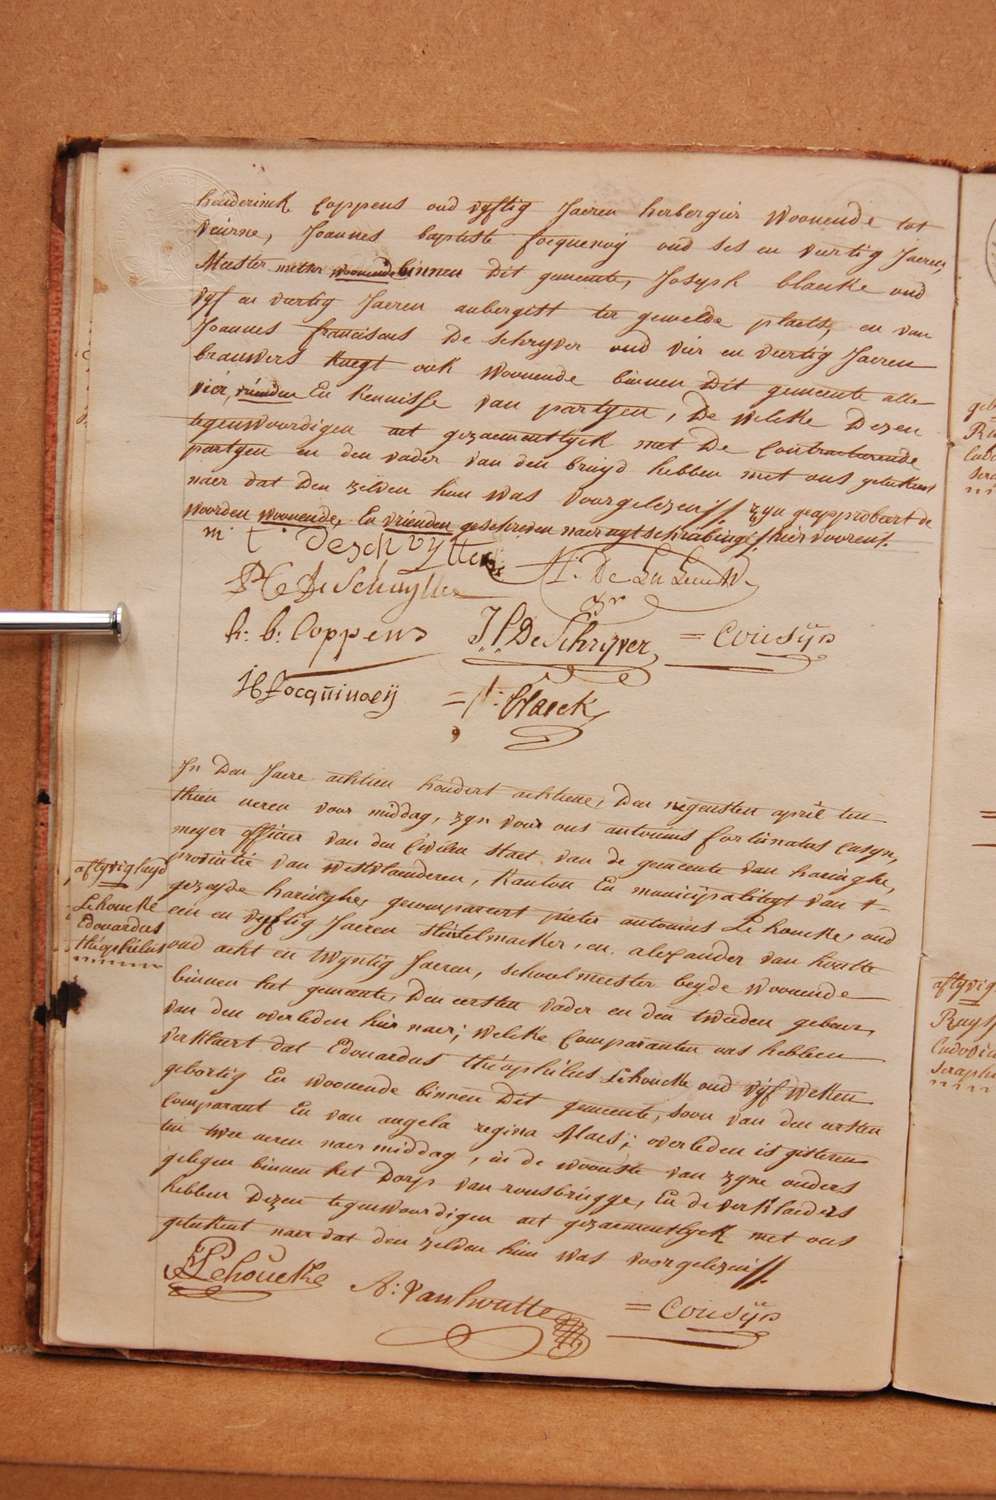 henderinck Coppens oud vyftig Jaeren herbergier Woonende tot
veurne, Joannes baptiste focquenoy oud ses en viertig Jaeren,
Meester metser woonende binnen dit gemeente, Joseph blaeke oud
vyf en viertig Jaeren aubergist ter gemelde plaets, en van
Joannes franciscus De Schryver oud vier en viertig Jaeren
brauwers Knegt ook Woonende binnen Dit gemeente alle
vier, vrienden En kennisse van partyen, De Welke Dezen
tegenwoordigen act gezaementlyck met De Contracterende
partyen en den vader van den bruyd hebben met ons geteekent
naer dat Den zelden hun was voorgelezen // zyn geapprobeert de
woorden woonende, En vrienden geschreven naer uytschrabinge hier vooren
m. t. Deschvytter
P C De Schuytter A. De
h: b: Coppens J. F. De Schryver = Cousijn
J B Focquinoeij = Blaeck
In Den Jaere achtien hondert achtiene, Den negensten april ten
thien ueren voor middag, zyn voor ons antonius fortunatus Cusyn,
meyer officier van den Civilen staet van de gemeente van haringhe,
provintie van Westvlaenderen, Kanton En municipaliteyt van t-
gezeyde haringhe, gecompareert pieter antonius Lehoucke, oud
een en vyftig Jaeren sleutelmaeker, en alexander van houtte
oud acht en twyntig Jaeren, schoolmeester beyde woonende
binnen het gemeente, Den eersten vader en den tweeden gebeur,
van den overleden hier naer; welke Comparanten ons hebben
verklaert dat Edouardus théophilus Lehoucke oud vyf Weken
gebortig En woonende binnen Dit gemeente, soon van den ersten
Comparant En van angela regina Maes; overleden is gisteren
ten twee ueren naer middag, in de woonste van zyne ouders
gelegen binnen het Dorp van rousbrugge, En de verklaeders
hebben Dezen tegenwoordigen act gezaementlyck met ons
geteekent naer dat den zelden hun was voorgelezen //.
Lehoucke A: Vanhoutte = Cousijn
aflyvigheyd
Lehoucke
Edouardus
théophilus
aflyvig
Ruys
Ludovic
seraph